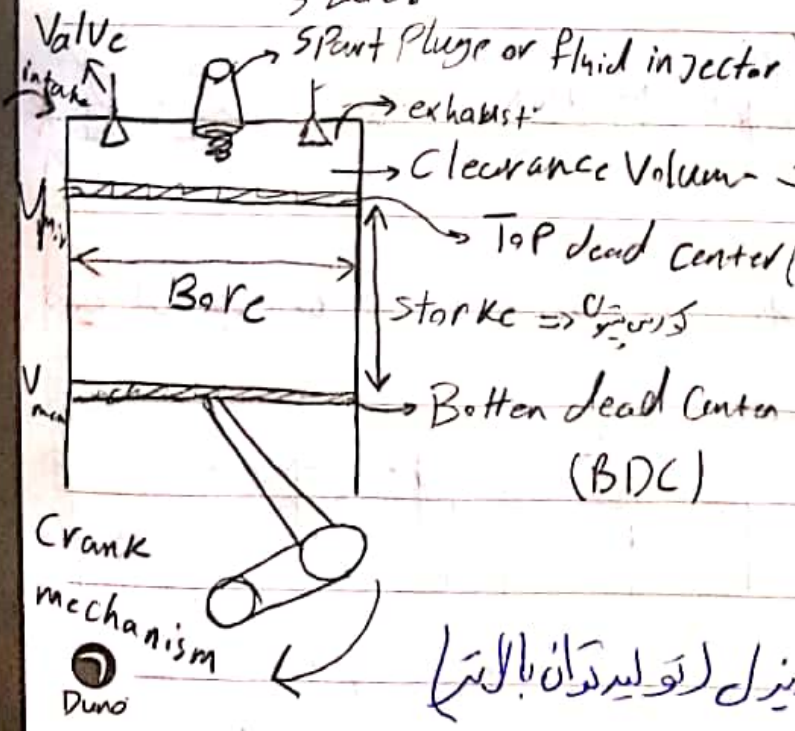 Valve
Spart Pluge or fluid injector
intake
exhaust
Clearance Volum
Vmin
Top dead center(
Bore
Storke => کورس پیستون
Vmax
Botten dead Centen
(BDC)
Crank
mechanism
یزل (تولید توان بالاتر)
Duno